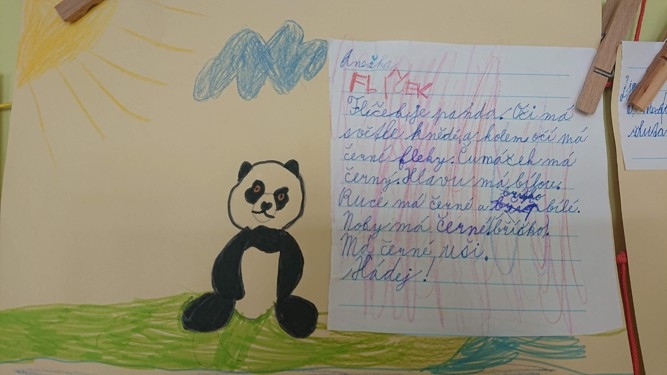 Anežka
FLÍČEK
Flíček je panda. Oči má
světle hnědé a kolem očí má
černé fleky. Čumáček má
černý. Hlavu má bílou.
Ruce má černé a břicho bílé.
Nohy má černé břicho.
Má černé uši.
Hádej!